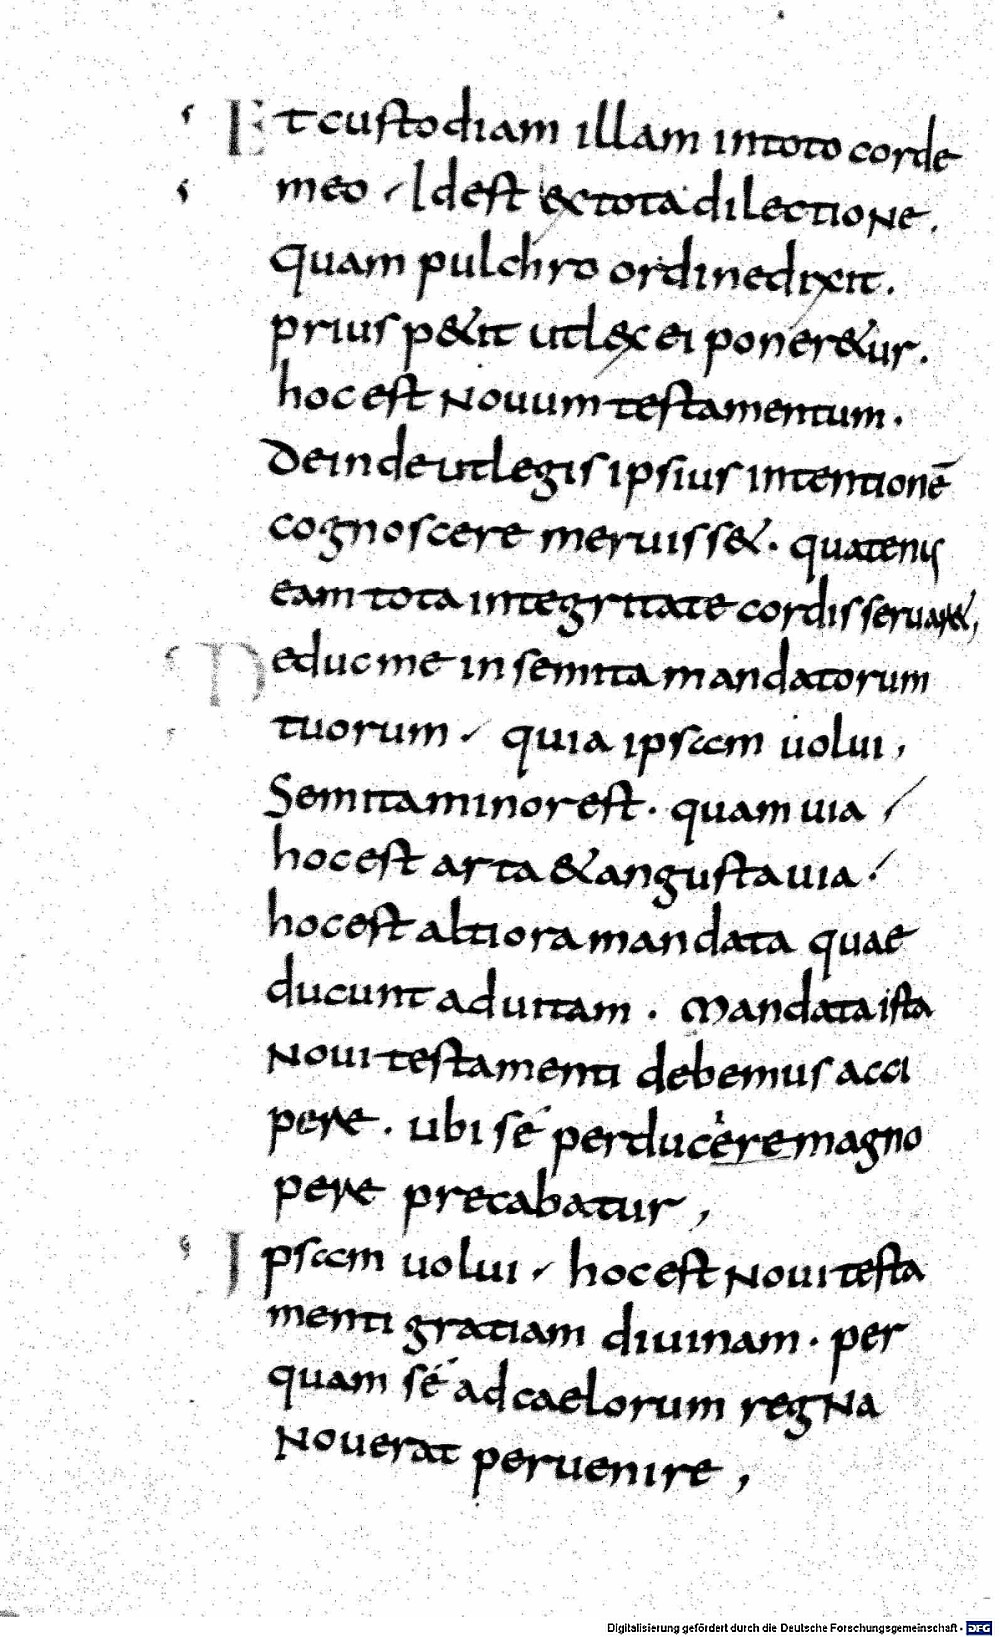 Et custodiam illam in toto corde
meo / Id est ex tota dilectione.
quam pulchro ordine dixit.
prius p&iit ut lex ei poner&ur.
hoc est Nouum testamentum.
Deinde ut legis ipsius intentionē
cognoscere meruiss&. quatenus
eam tota integritate cordis seruar&,
Deduc me in semita mandatorum
tuorum / quia ipsam uolui,
Semita minor est. quam uia /
hoc est arta & angusta uia /
hoc est altiora mandata quae
ducunt ad uitam. Mandata ista
Noui testamenti debemus acci
pere. ubi sé perducere magno
pere precabatur,
Ipsam uolui / hoc est Noui testa
menti gratiam diuinam. per
quam sé ad caelorum regNa
Nouerat peruenire,
Digitalisierung gefördert durch die Deutsche Forschungsgemeinschaft - DFG